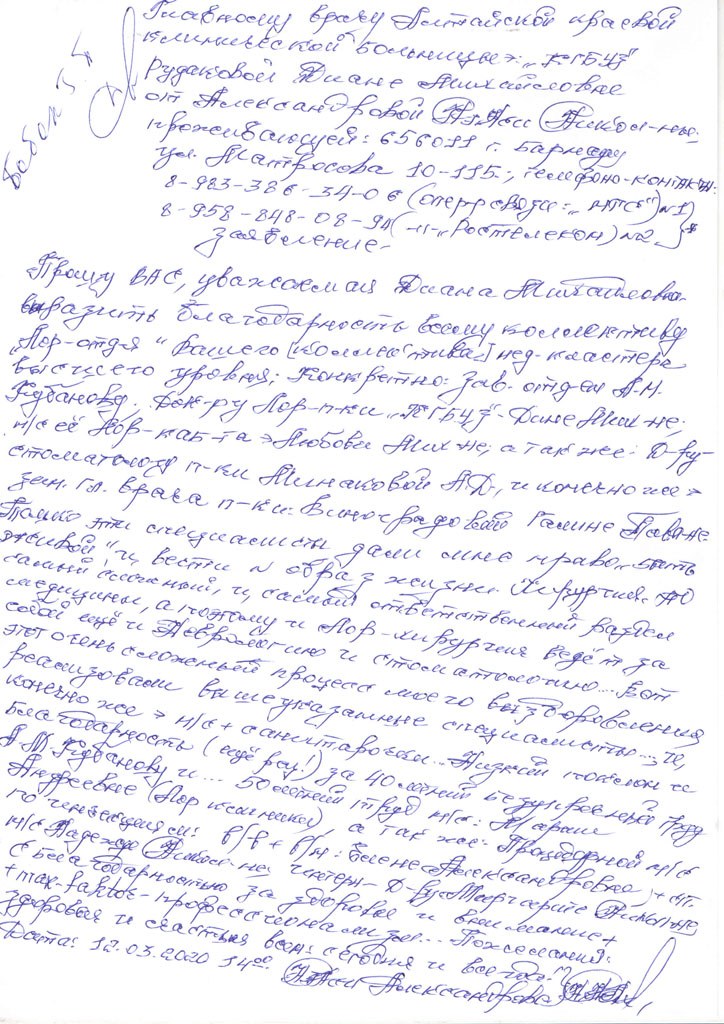 Главному врачу Алтайской краевой
клинической больницы "КГБУЗ"
Рудаковой Диане Михайловне
от Александровой
проживающей: 656011 г. Барнаул
ул. Матросова 10-115; телефоно-контакты:
8-983-386-34-06 (опер. связи: "МТС") №1
8-958-848-08-94 (-"- "Ростелеком) №2
Заявление-
Прошу ВАС, уважаемая Диана Михайловна
выразить благодарность всему коллективу
"Лор-отд-я" Вашего [коллектива] мед-кластера
высшего уровня; Конкретно: Зав. отд-ем А.М.
Кубанову, Док-ру Лор-п-ки "КГБУЗ"- Дине Мих-не;
м/с её Лор-каб-та → Любови Мих-не; а так же: Д-ру-
стоматологу п-ки Минаковой А.Д., и конечно же →
зам. Гл. врача п-ки: Виноградовой Галине Пав-не
Только эти специалисты дали мне право "быть
живой" и, вести образ жизни. Хирургия -
самый сложный, и, самый ответственный раздел
медицины, а поэтому и Лор-хирургия ведёт за
собой ещё и Неврологию и стоматологию... Вот
этот очень сложный процесс моего выздоровления
реализовали вышеуказанные специалисты... и,
конечно же → м/с + санитарочки... Низкий поклон и
благодарность (ещё раз!) за 40-летний безупречный труд
А.М. Кубанову и... 50-летний труд м/с: Марии
Андреевне (Лор клиники), а так же: Процедурной м/с
по инъекциям: в/в + в/м: Елене Александровне, + ст.
м/с Надежде интерн- Д-ру Маргарите
с благодарностью за здоровье и внимание +
+ max. faktor- профессионализм... Пожелания:
здоровья и счастья всем: сегодня и всегда!
Дата: 12.03.2020 14⁰⁰ Александрова